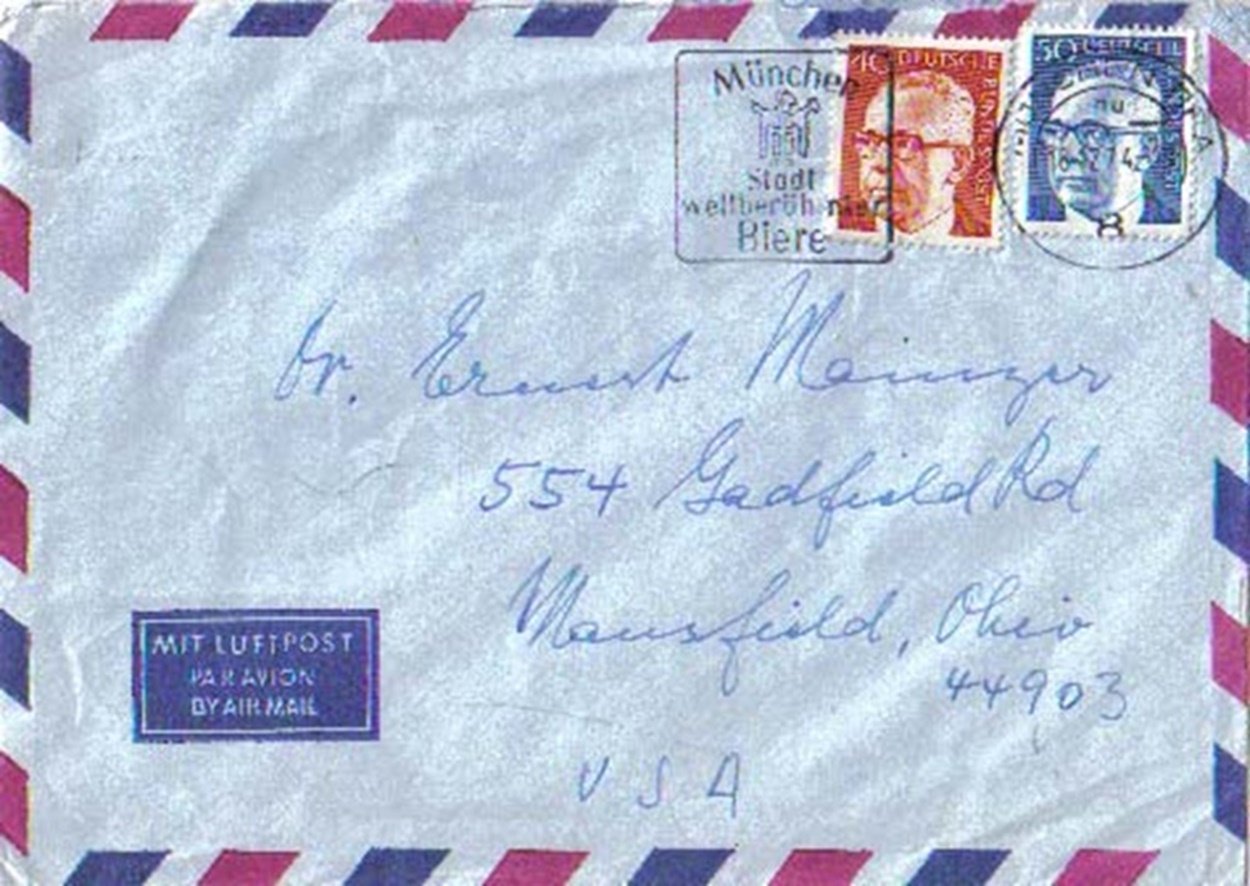 München
Stadt
weltberühmter
Biere
40 DEUTSCHE BUNDESPOST
50 DEUTSCHE BUNDESPOST
8
Dr. Ernst Mainzer
554 Gadfield Rd
Mansfield, Ohio
44903
USA
MIT LUFTPOST
PAR AVION
BY AIR MAIL